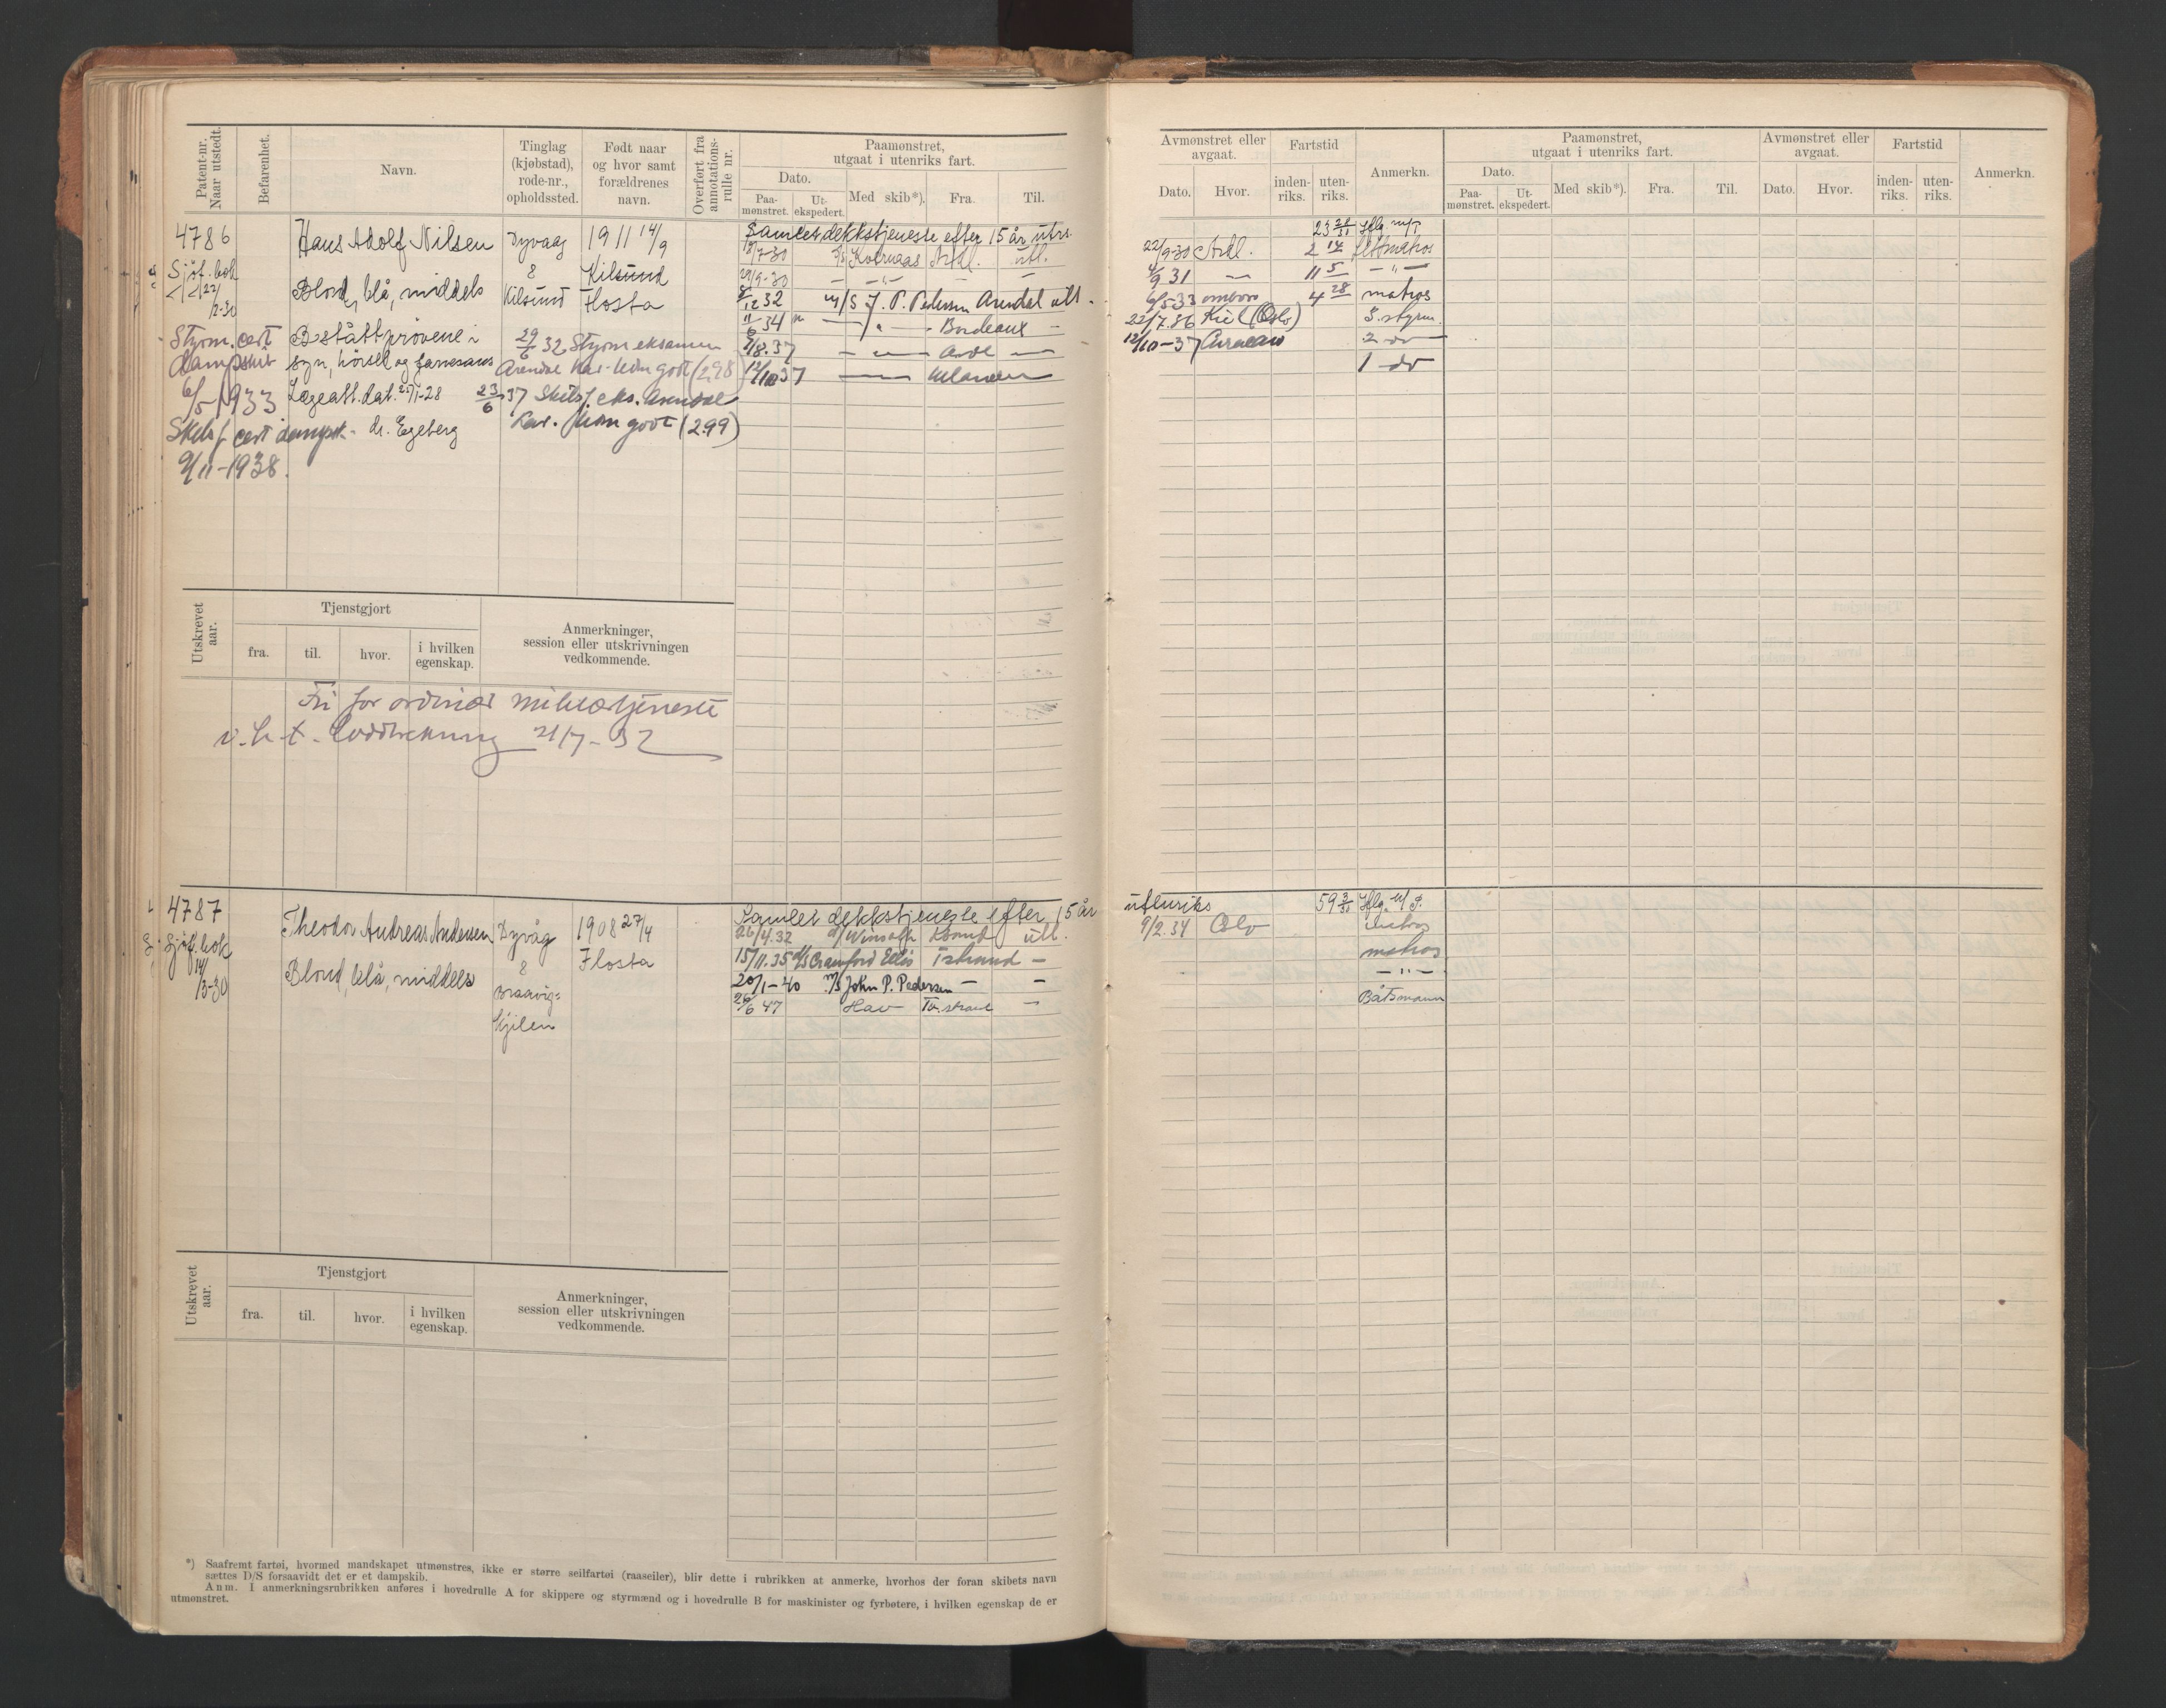 Patent-nr. Naar utstedt.
Befarenhet.
Navn.
Tinglag (kjøbstad), rode-nr., opholdssted.
Født naar og hvor samt forældrenes navn.
Overført fra annotations-rulle nr.
Paamønstret, utgaat i utenriks fart.
Dato.
Paa-mønstret.
Ut-ekspedert.
Med skib*).
Fra.
Til.
4786
Hans Adolf Nilsen
Dyvaag
1911 14/9
Samlet dekkstjeneste efter 15 år utrs.
Sjøf. bok
8
Kilsund
Blond, blå, middels
Kilsund
Flosta
29/9-30
12 32 M/S J. P. Pedersen Arendal utl.
11/6 34 Bordeaux
Styrm. cert
Bestått prøvene i
29/6 32 Styrm eksamen
dampskib
syn, hørsel og farvesans
Arendal Kar. godt (2.98)
12/10 37
6/5-1933
Lægeatt. dat. 28
23/6 37 Skibsf. eks. Arendal
Skibsf. cert dampsk.
dr. Egeberg
Kar. godt (2.99)
9/11-1938.
Utskrevet aar.
Tjenstgjort
fra.
til.
hvor.
i hvilken egenskap.
Anmerkninger, session eller utskrivningen vedkommende.
Fri for ordinær militærtjeneste
v. h. t. loddtrekning 21/7-32
4787
Theodor Andreas Andersen
Dyvåg
1908 27/4
Samlet dekkstjeneste efter 15 år
Sjøf. bok
8
Flosta
26/4.32 utl.
14/3-30
Blond, blå, middels
15/11.35 d/s Crawford Ellis Tvstrand –
20/1-40 M/S John P. Pedersen – –
26/6 47 Hav Tv.strand –
Kjilen
Utskrevet aar.
Tjenstgjort
fra.
til.
hvor.
i hvilken egenskap.
Anmerkninger, session eller utskrivningen vedkommende.
*) Saafremt fartøi, hvormed mandskapet utmønstres, ikke er større seilfartøi (raaseiler), blir dette i rubrikken at anmerke, hvorhos der foran skibets navn
sættes D/S forsaavidt det er et dampskib.
Anm. I anmerkningsrubrikken anføres i hovedrulle A for skippere og styrmænd og i hovedrulle B for maskinister og fyrbøtere, i hvilken egenskap de er
utmønstret.
Avmønstret eller avgaat.
Dato.
Hvor.
Fartstid
inden-riks.
uten-riks.
Anmerkn.
Paamønstret, utgaat i utenriks fart.
Dato.
Paa-mønstret.
Ut-ekspedert.
Med skib*).
Fra.
Til.
Avmønstret eller avgaat.
Dato.
Hvor.
Fartstid
inden-riks.
uten-riks.
Anmerkn.
22/9-30 Ardl. 2 14 lettmatros
4/9 31 — 11 5 — „ —
6/5-33 ombord 4 28 matros
22/7.36 Kiel (Oslo) 3. styrm.
12/10-37 Curacao 2 do
1 do
utenriks
9/2.34 Oslo matros
matros
— „ —
Båtsmann